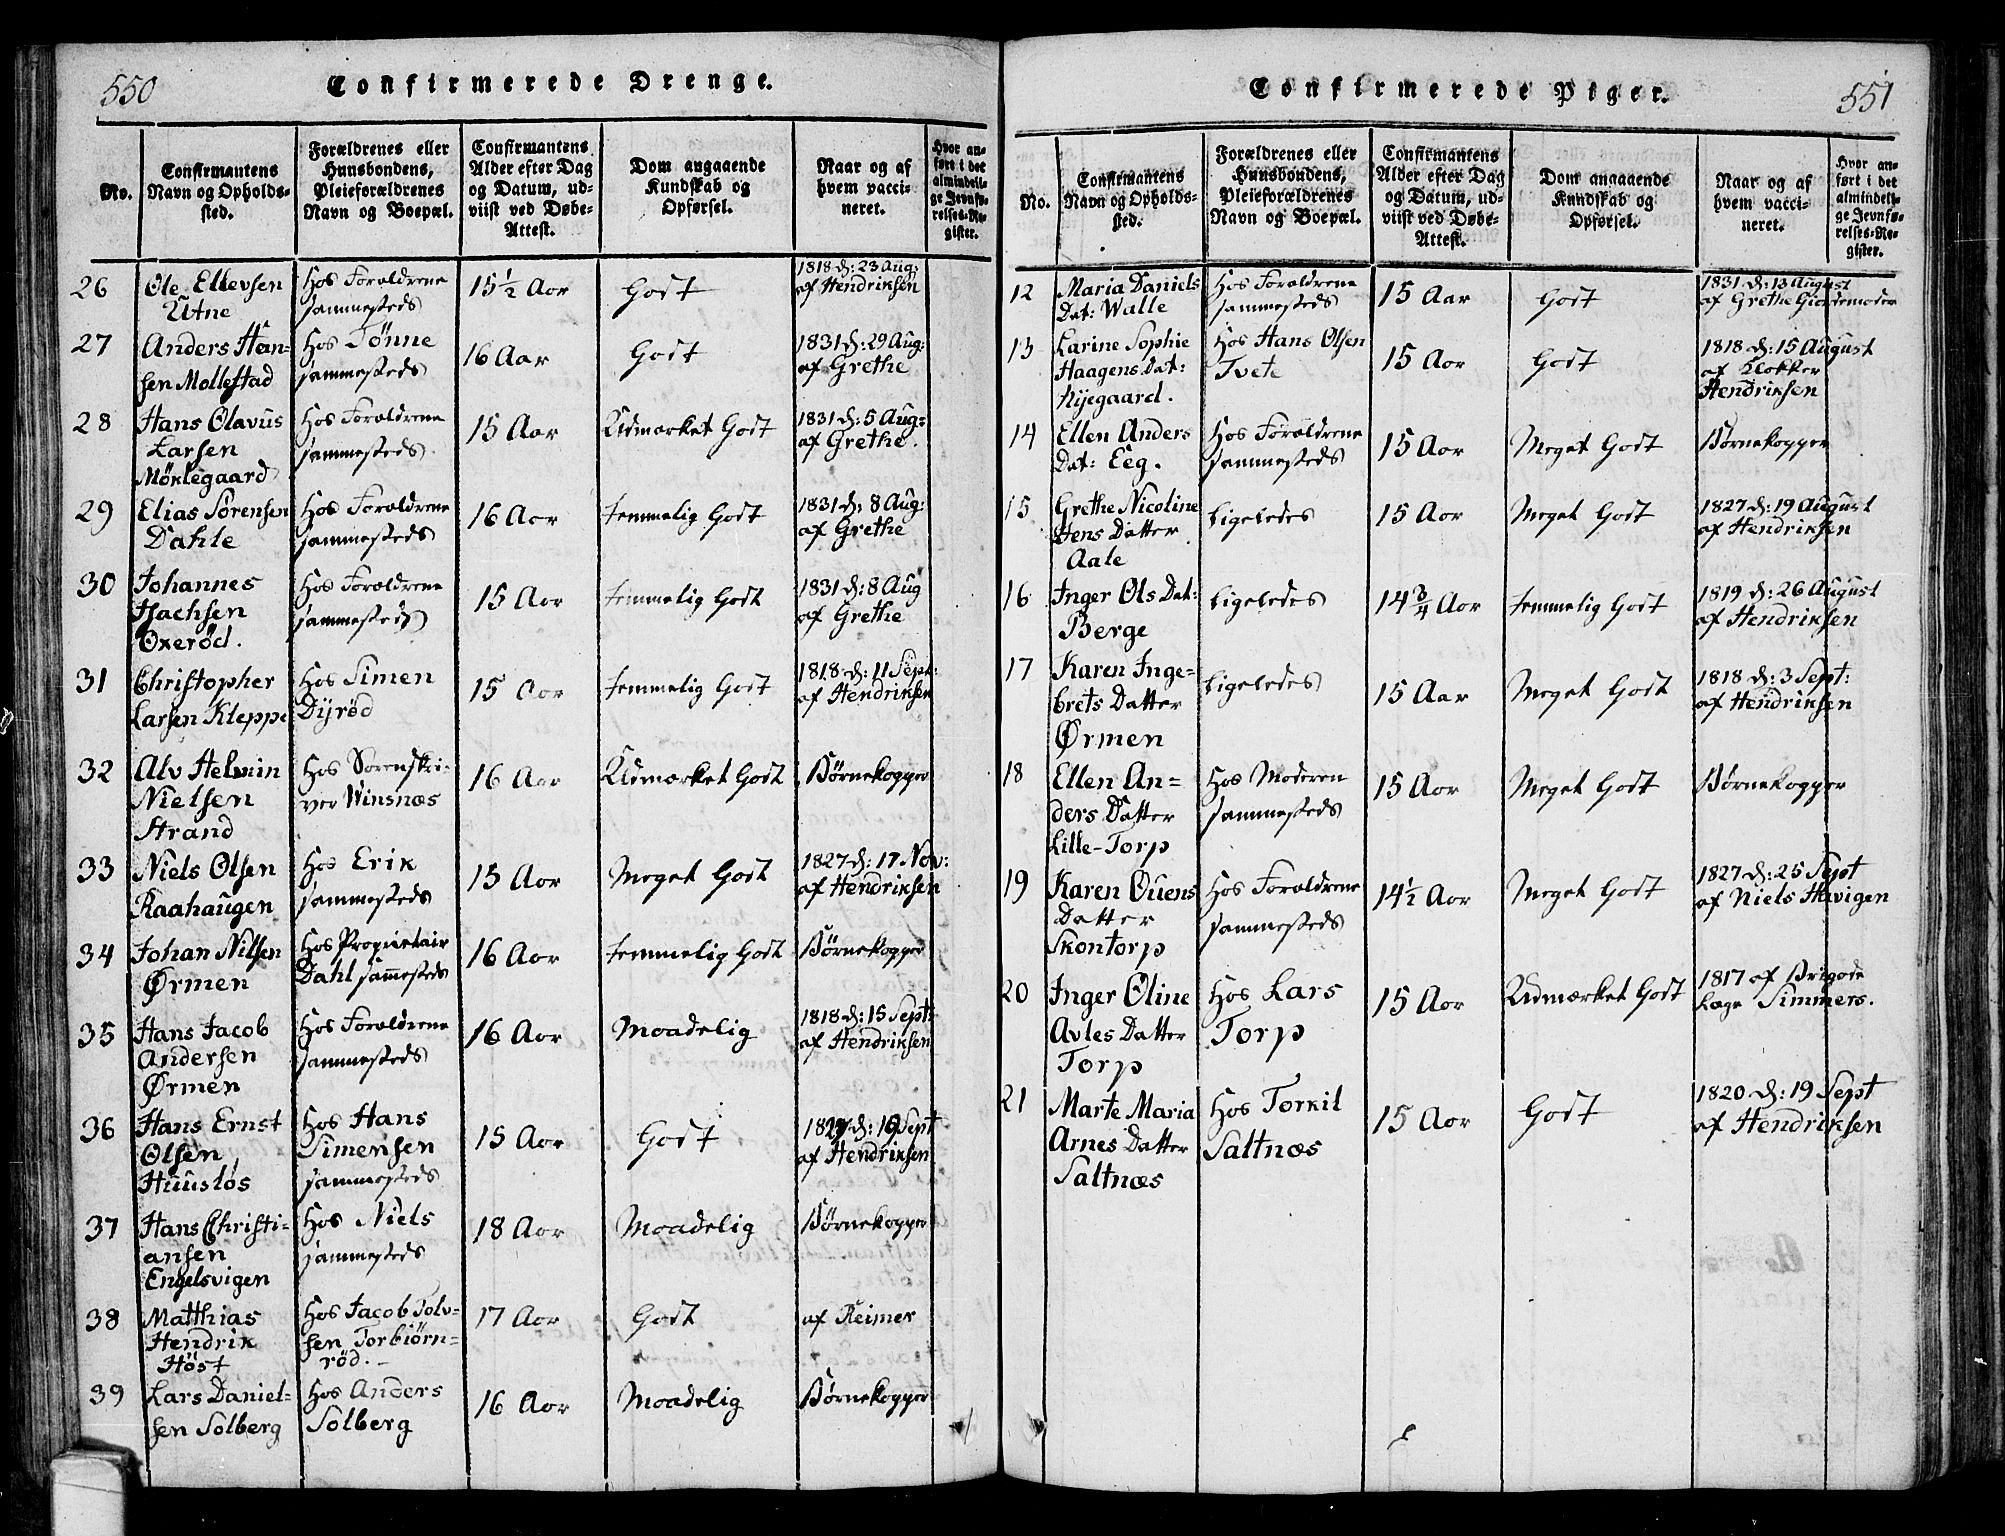 550
Confirmerede Drenge.
No.
Confirmantens
Navn og Opholds-
sted.
Forældrenes eller
Huusbondens,
Pleieforældrenes
Navn og Boepæl.
Confirmantens
Alder efter Dag
og Datum, ud-
viist ved Døbe-
Attest.
Dom angaaende
Kundskab og
Opførsel.
Naar og af
hvem vacci-
neret.
Hvor an-
ført i det
almindeli-
ge Jevnfø-
relses-Re-
gister.
26
Ole Ellevsen
Utne
Hos Forældrene
sammesteds
15½ Aar
Godt
1818 d: 23 Aug:
af Hendriksen
27
Anders Han-
sen Mollestad
Hos Tønne
sammesteds
16 Aar
Godt
1831 d: 29 Aug:
af Grethe
28
Hans Olavus
Larsen
Möklegaard
Hos Forældrene
sammesteds.
15 Aar
Udmærket Godt
1831 d: 5 Aug:
af Grethe.
29
Elias Sörensen
Dahle
Hos Forældrene
sammesteds
16 Aar
temmelig Godt
1831 d: 8 Aug:
af Grethe
30
Johannes
Isachsen
Oxeröd.
Hos Forældrene
sammesteds
15 Aar
temmelig Godt
1831 d: 8 Aug
af Grethe
31
Christopher
Larsen Kleppe
Hos Simen
Dyrød
15 Aar
temmelig Godt
1818 d: 11 Sept:
af Hendriksen
32
Alv Helmin
Nielsen
Strand
Hos Sorenskri-
ver Winsnæs
16 Aar
Udmærket Godt
Börnekopper
33
Niels Olsen
Raahaugen
Hos Erik
sammesteds
15 Aar
Meget Godt
1827 d: 17 Nov:
af Hendriksen
34
Johan Nilsen
Ørmen
Hos Propietair
Dahl sam̄esteds
16 Aar
temmelig Godt
Börnekopper
35
Hans Jacob
Andersen
Ørmen
Hos Forældrene
sammesteds
16 Aar
Maadelig
1818 d: 15 Sept:
af Hendriksen
36
Hans Ernst
Olsen
Huuslös
Hos Hans
Simensen
sammesteds
15 Aar
Godt
d: Sept
af Hendriksen
37
Hans Christi-
ansen
Engelsvigen
Hos Niels
sammesteds
18 Aar
Maadelig
Börnekopper
38
Matthias
Hendrik
Höst
Hos Jacob Tolv-
sen Torbiörn-
röd.
17 Aar
Godt
af Reimer
39
Lars Daniel-
sen Solberg
Hos Anders
Solberg
16 Aar
Maadelig
Börnekopper
551
Confirmerede Piger.
No.
Confirmantens
Navn og Opholds-
sted.
Forældrenes eller
Huusbondens,
Pleieforældrenes
Navn og Boepæl.
Confirmantens
Alder efter Dag
og Datum, ud-
viist ved Døbe-
Attest.
Dom angaaende
Kundskab og
Opførsel.
Naar og af
hvem vacci-
neret.
Hvor an-
ført i det
almindeli-
ge Jevnfø-
relses-Re-
gister.
12
Maria Daniels
Dat: Walle
Hos Forældrene
sammesteds
15 Aar
Godt
1831 d: 13 August
af Grethe Giordemoder
13
Larine Sophie
Haagens Dat:
Kijegaard.
Hos Hans Olsen
Tvete
15 Aar
Godt
1818 d: 15 August
af Klokker
Hendriksen
14
Ellen Anders
Dat: Eeg.
Hos Forældrene
sammesteds
15 Aar
Meget Godt
Börnekopper
15
Grethe Nicoline
Jens Datter
Aale
Ligeledes
15 Aar
Meget Godt
1827 d: 19 August
af Hendriksen
16
Inger Ols Dat:
Berge
Ligeledes
14¾ Aar
temmelig Godt
1819 d: 26 August
af Hendriksen
17
Karen Inge-
brets Datter
Ørmen
Ligeledes
15 Aar
Meget Godt
1818 d: 3 Sept:
af Hendriksen
18
Ellen An-
ders Datter
Lille-Torp
Hos Moderen
sammesteds
15 Aar
Meget Godt
Börnekopper
19
Karen Ouens
Datter
Skontorp
Hos Forældrene
sammesteds
14½ Aar
Meget Godt
1827 d: 25 Sept
af Niels Høvigen
20
Inger Oline
Avles Datter
Torp
Hos Lars
Torp
15 Aar
Udmærket Godt
1817 af Brigade
Læge Simmers.
21
Marte Maria
Arnes Datter
Saltnæs
Hos Torkil
Saltnæs
15 Aar
Godt
1820 d: 19 Sept
af Hendriksen